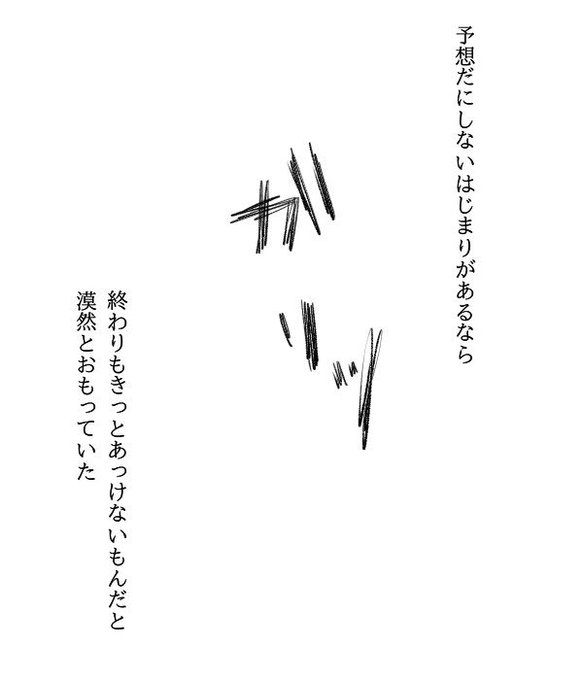 予想だにしないはじまりがあるなら
ガッ
終わりもきっとあっけないもんだと
漠然とおもっていた